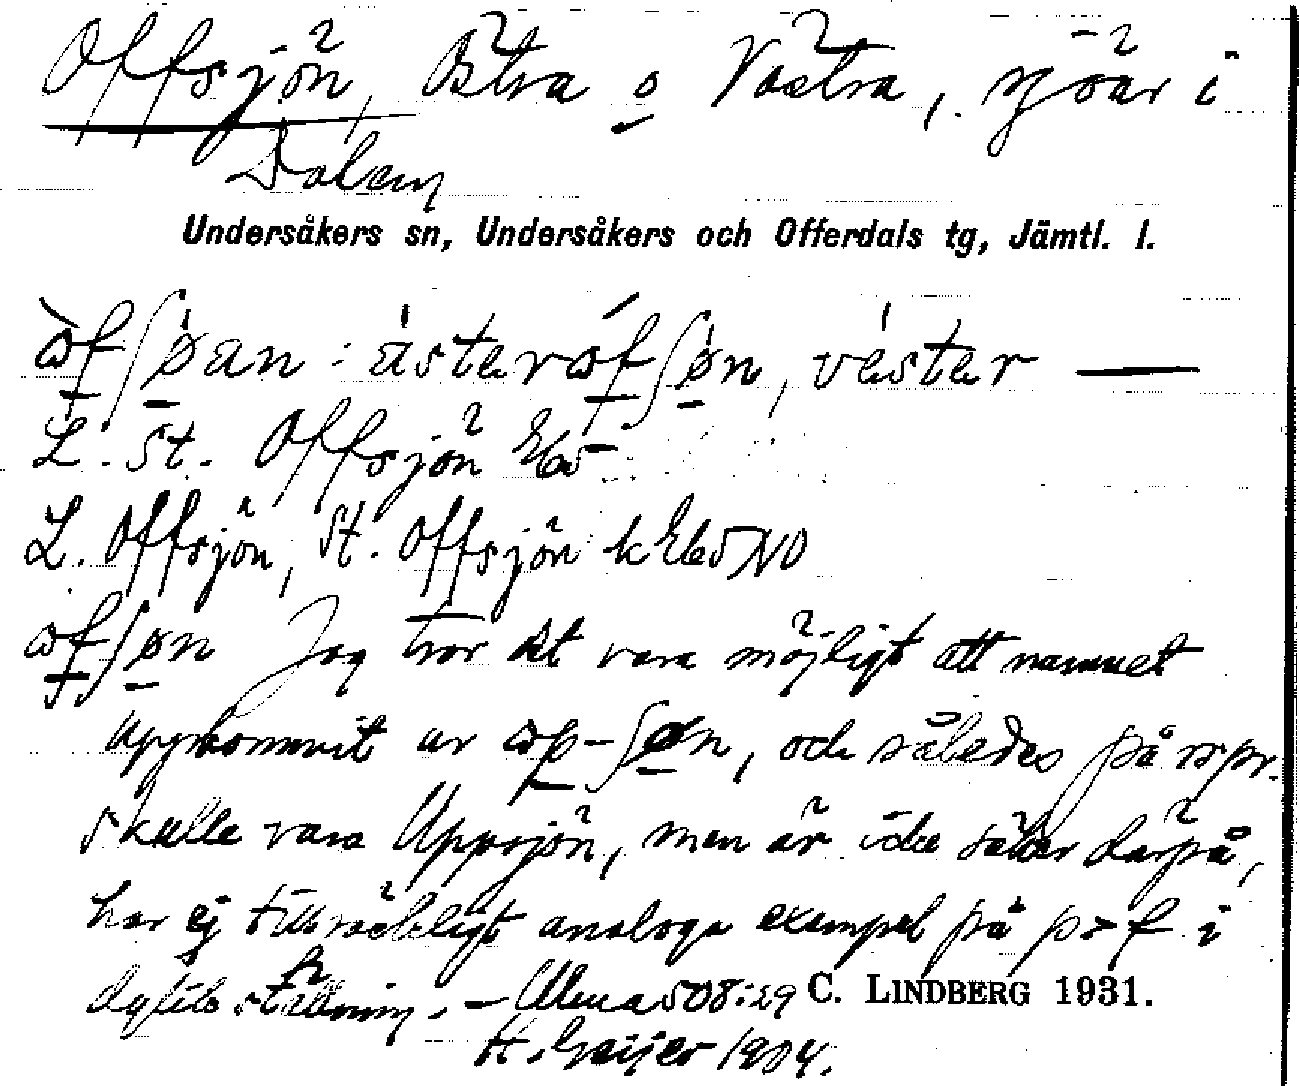 Offsjön, Östra o Västra, sjöar i
Dalen
Undersåkers sn, Undersåkers och Offerdals tg, Jämtl. l.
ɷ̀fʃøan : ùsterɷ́fʃøn, vèster —
L. St. Offsjön Ebö
L. Offsjön, St. Offsjön k Ebö NO
ɷfʃøn Jag tror det vara möjligt att namnet
uppkommit av ɷp-ʃøn, och således på rspr.
skulle vara Uppsjön, men är icke säker därpå,
har ej tillräckligt analoga exempel på p > f i
dylik ställning. — Ulma 508:29 C. LINDBERG 1931.
H. Geijer 1904.